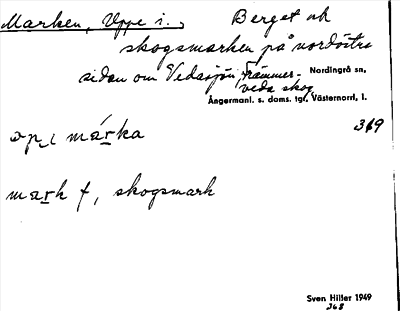 Marken, Uppe i., Berget och
skogsmarken på nordöstra
sidan om Vedasjön, Främmer-
veda skog. Nordingrå sn,
Ångermanl. s. doms. tgl. Västernorrl, l.
op, i márka 369
mark f, skogsmark
Sven Hiller 1949
368